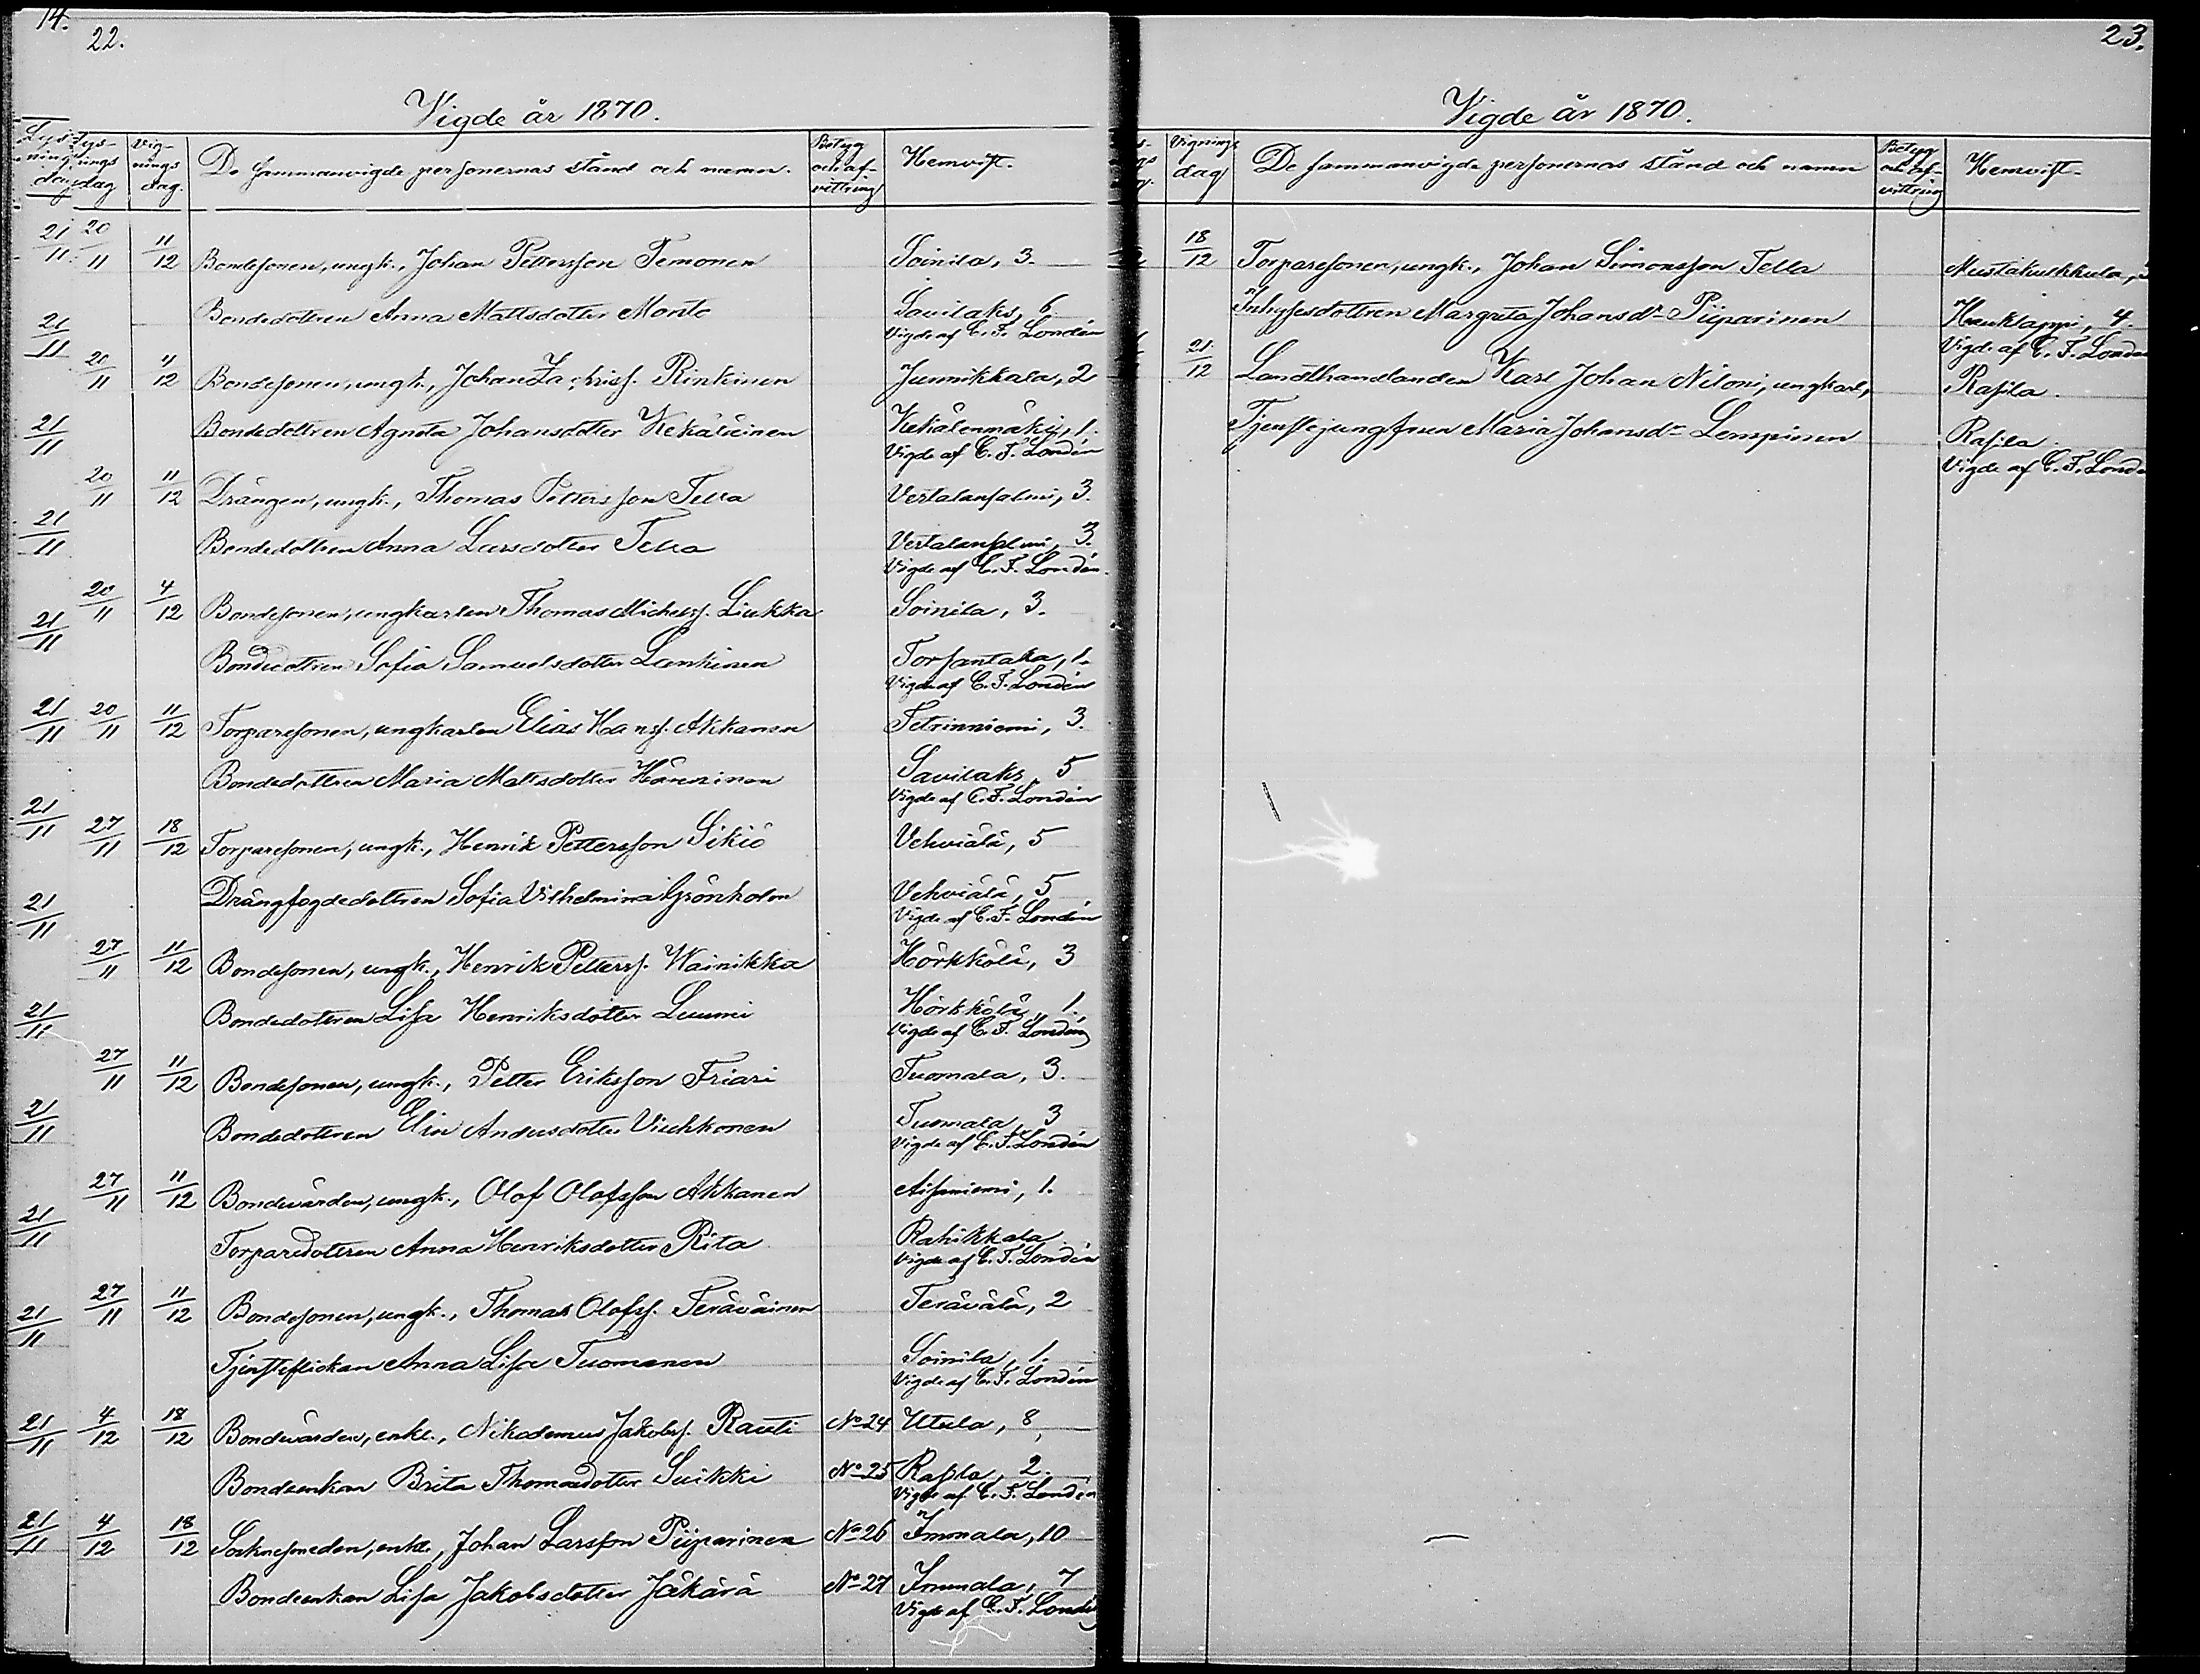 14.
22.
Vigde år 1870.
Lysningsdag
Lysningsdag
Vigningsdag.
De sammanvigde personernas stånd och namn.
Betyg och afvittring
Hemvist.
21/11 20/11 11/12 Bondesonen, ungk., Johan Pettersson Temonen Soinila, 3.
Bondedottren Anna Mattsdotter Monto Savilaks, 6
21/11 Vigde af C. F. Londén
20/11 11/12 Bondesonen, ungk., Johan Zachriss. Rinkinen Junnikkala, 2
21/11 Bondedottren Agneta Johansdotter Kekäläinen Kekälenmäki, 1.
Vigde af C. F. Londén
20/11 11/12 Drängen, ungk., Thomas Pettersson Tella Vertalansalmi, 3.
21/11 Bondedottren Anna Larsdotter Tella Vertalansalmi, 3.
Vigde af C. F. Londén.
20/11 4/12 Bondesonen, ungkarlen Thomas Michelss. Liukka Soinila, 3.
21/11 Bondedottren Sofia Samuelsdotter Lankinen Torsantaka, 1.
Vigde af C. F. Londén
21/11 20/11 11/12 Torparesonen, ungkarlen Elias Hanss. Akkanen Tetrinniemi, 3.
Bondedottren Maria Mattsdotter Hänninen Savilaks, 5
Vigde af C. F. Londén
21/11 27/11 18/12 Torparesonen, ungk., Henrik Pettersson Sikiö Vehviälä, 5
21/11 Drängfogdedottren Sofia Vilhelmina Grönholm Vehviälä, 5
Vigde af C. F. Londén
27/11 11/12 Bondesonen, ungk., Henrik Petterss. Wainikka Hörkkölä, 3
21/11 Bondedottren Lisa Henriksdotter Luumi Hörkkölä, 1.
Vigde af C. F. Londén
27/11 11/12 Bondesonen, ungk., Petter Eriksson Friari Tuomala, 3.
21/11 Bondedottren Elin Andersdotter Viuhkonen Tuomala, 3
Vigde af C. F. Londén
27/11 11/12 Bondevärden, ungk., Olof Olofsson Akkanen Aisaniemi, 1.
21/11 Torparedottren Anna Henriksdotter Rita Rahikkala
Vigde af C. F. Londén
27/11 11/12 Bondesonen, ungk., Thomas Olofss. Teräväinen Terävälä, 2
21/11 Tjensteflickan Anna Lisa Tuomanen Soinila, 1.
Vigde af C. F. Londén
21/11 4/12 18/12 Bondvärden, enkl., Nikodemus Jakobss. Rauti No 24 Utula, 8,
Bondeenkan Brita Thomasdotter Suikki No 25 Rasila, 2.
Vigde af C. F. Londén
21/11 4/12 18/12 Socknesmeden, enkl., Johan Larsson Piiparinen No 26 Immala, 10
Bondeenkan Lisa Jakobsdotter Jäkärä No 27 Immala, 7
Vigde af C. F. Londén
23.
Vigde år 1870.
Vignings dag
De sammanvigde personernas stånd och namn
Betyg och afvittring
Hemvist.
18/12 Torparesonen, ungk., Johan Simonsson Tella Mustakulkkula,
Inhysesdottren Margreta Johansdr Piiparinen Hauklappi, 4.
Vigde af C. F. Londén
21/12 Landthandlanden Karl Johan Niloni, ungkarl, Rasila.
Tjenstejungfrun Maria Johansdr Lempinen Rasila
Vigde af C. F. Londén